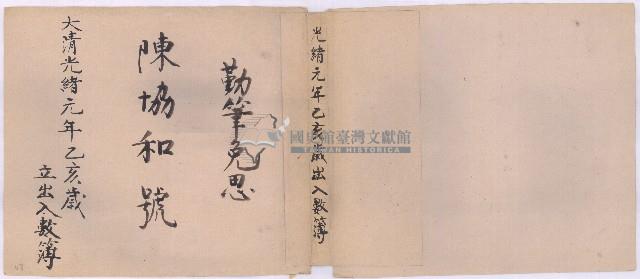 光緒元年乙亥歲出入數簿
勤筆免思
陳協和號
大清光緒元年乙亥歲
立出入數簿
國史館臺灣文獻館
TAIWAN HISTORICA